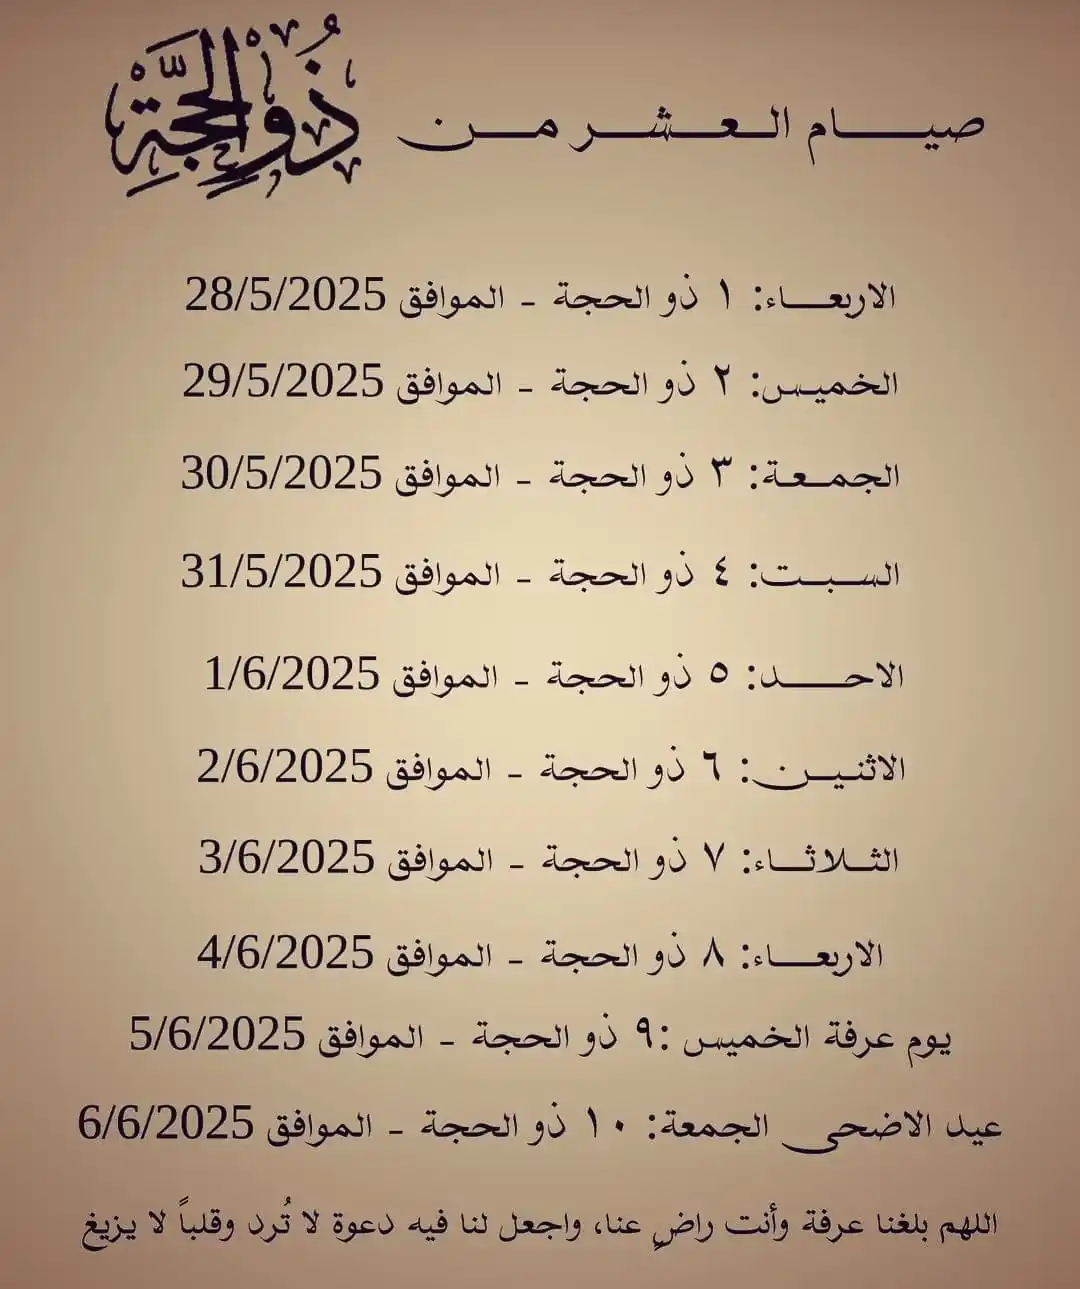 صيام العشر من ذُو الحجَّةِ
الاربعاء: ١ ذو الحجة - الموافق 28/5/2025
الخميس: ٢ ذو الحجة - الموافق 29/5/2025
الجمعة: ٣ ذو الحجة - الموافق 30/5/2025
السبت: ٤ ذو الحجة - الموافق 31/5/2025
الاحد: ٥ ذو الحجة - الموافق 1/6/2025
الاثنين: ٦ ذو الحجة - الموافق 2/6/2025
الثلاثاء: ٧ ذو الحجة - الموافق 3/6/2025
الاربعاء: ٨ ذو الحجة - الموافق 4/6/2025
يوم عرفة الخميس :٩ ذو الحجة - الموافق 5/6/2025
عيد الاضحى الجمعة: ١٠ ذو الحجة - الموافق 6/6/2025
اللهم بلغنا عرفة وأنت راضٍ عنا، واجعل لنا فيه دعوة لا تُرد وقلباً لا يزيغ